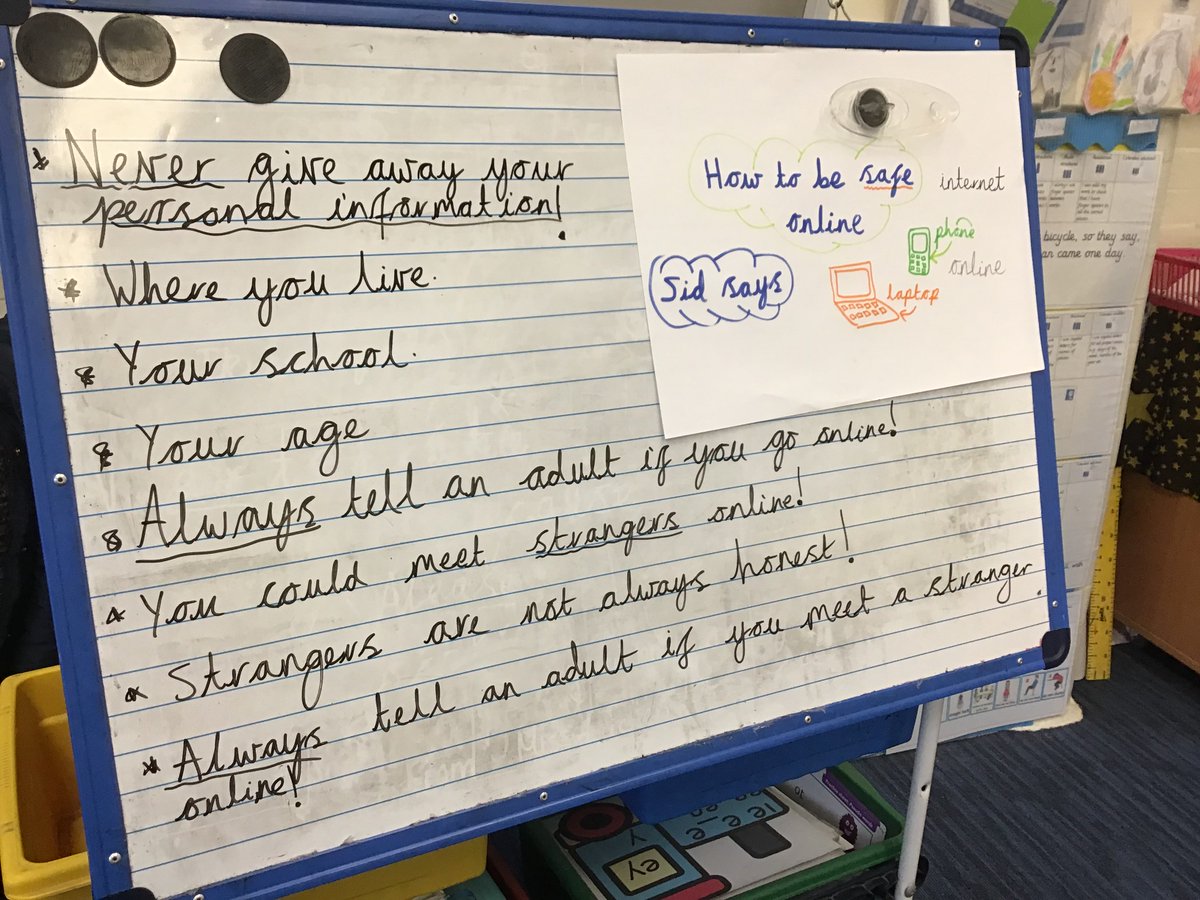 * Never give away your
personal information!
* Where you live.
* Your school.
* Your age
* Always tell an adult if you go online!
* You could meet strangers online!
* Strangers are not always honest!
* Always tell an adult if you meet a stranger
online!
How to be safe
online
internet
phone
online
Sid says
laptop
bicycle, so they say,
an came one day.
ey